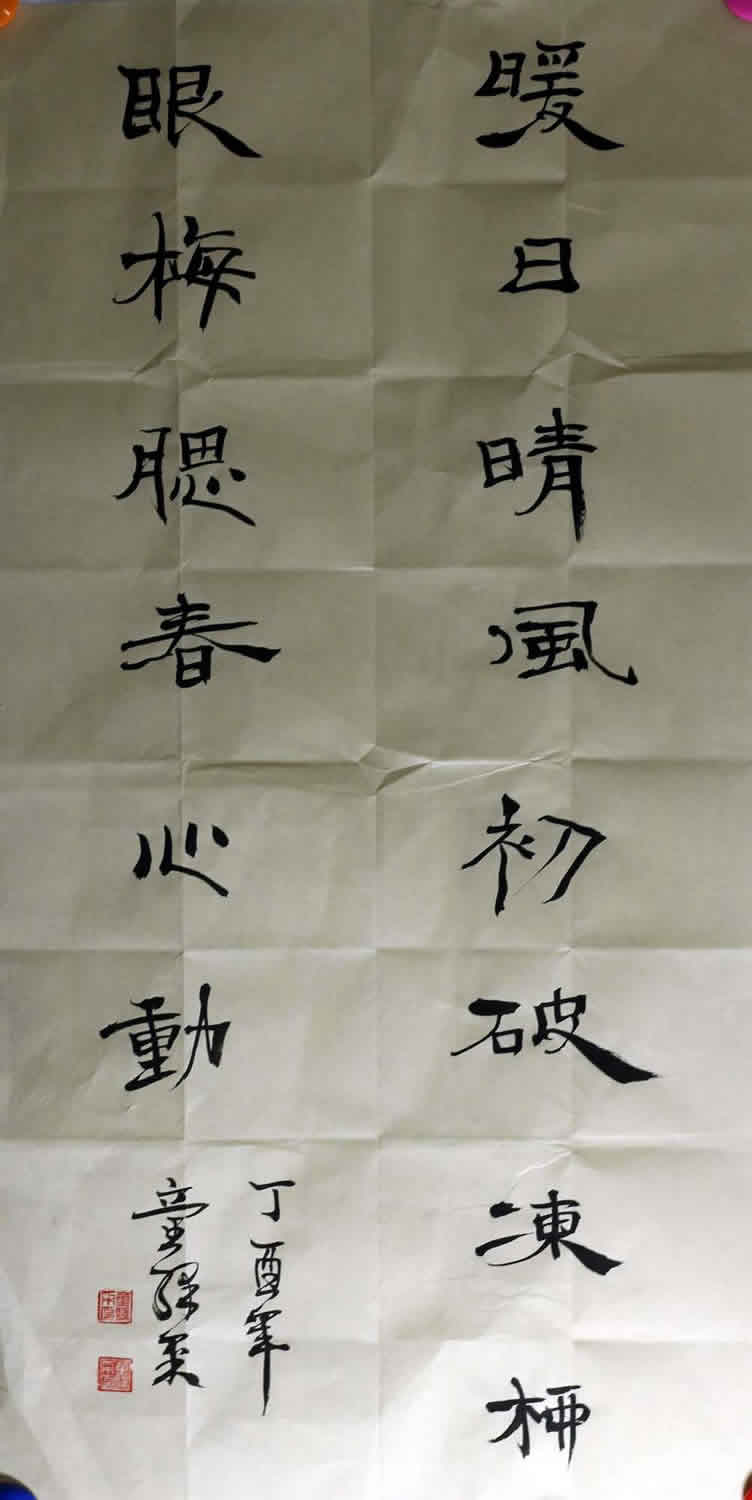 暖日晴風初破凍柳
眼梅腮春心動
丁酉年
童